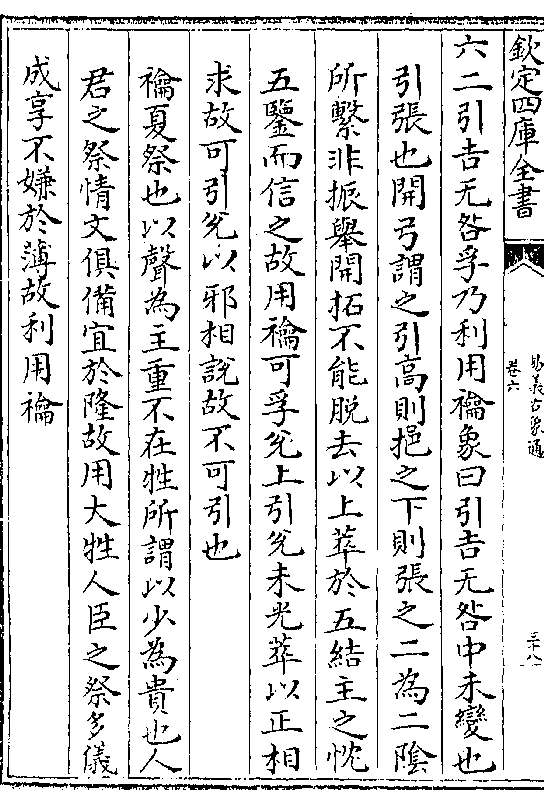 欽定四庫全書
易義古象通
卷六
三十八
六二引吉无咎孚乃利用禴象曰引吉无咎中未變也
引張也開弓謂之引高則挹之下則張之二為二陰
所繫非振舉開拓不能脱去以上萃於五結主之忱
五鑒而信之故用禴可孚兊上引兊未光萃以正相
求故可引兊以邪相說故不可引也
禴夏祭也以聲為主重不在牲所謂以少為貴也人
君之祭情文俱備宜於隆故用大牲人臣之祭多儀
成享不嫌於薄故利用禴